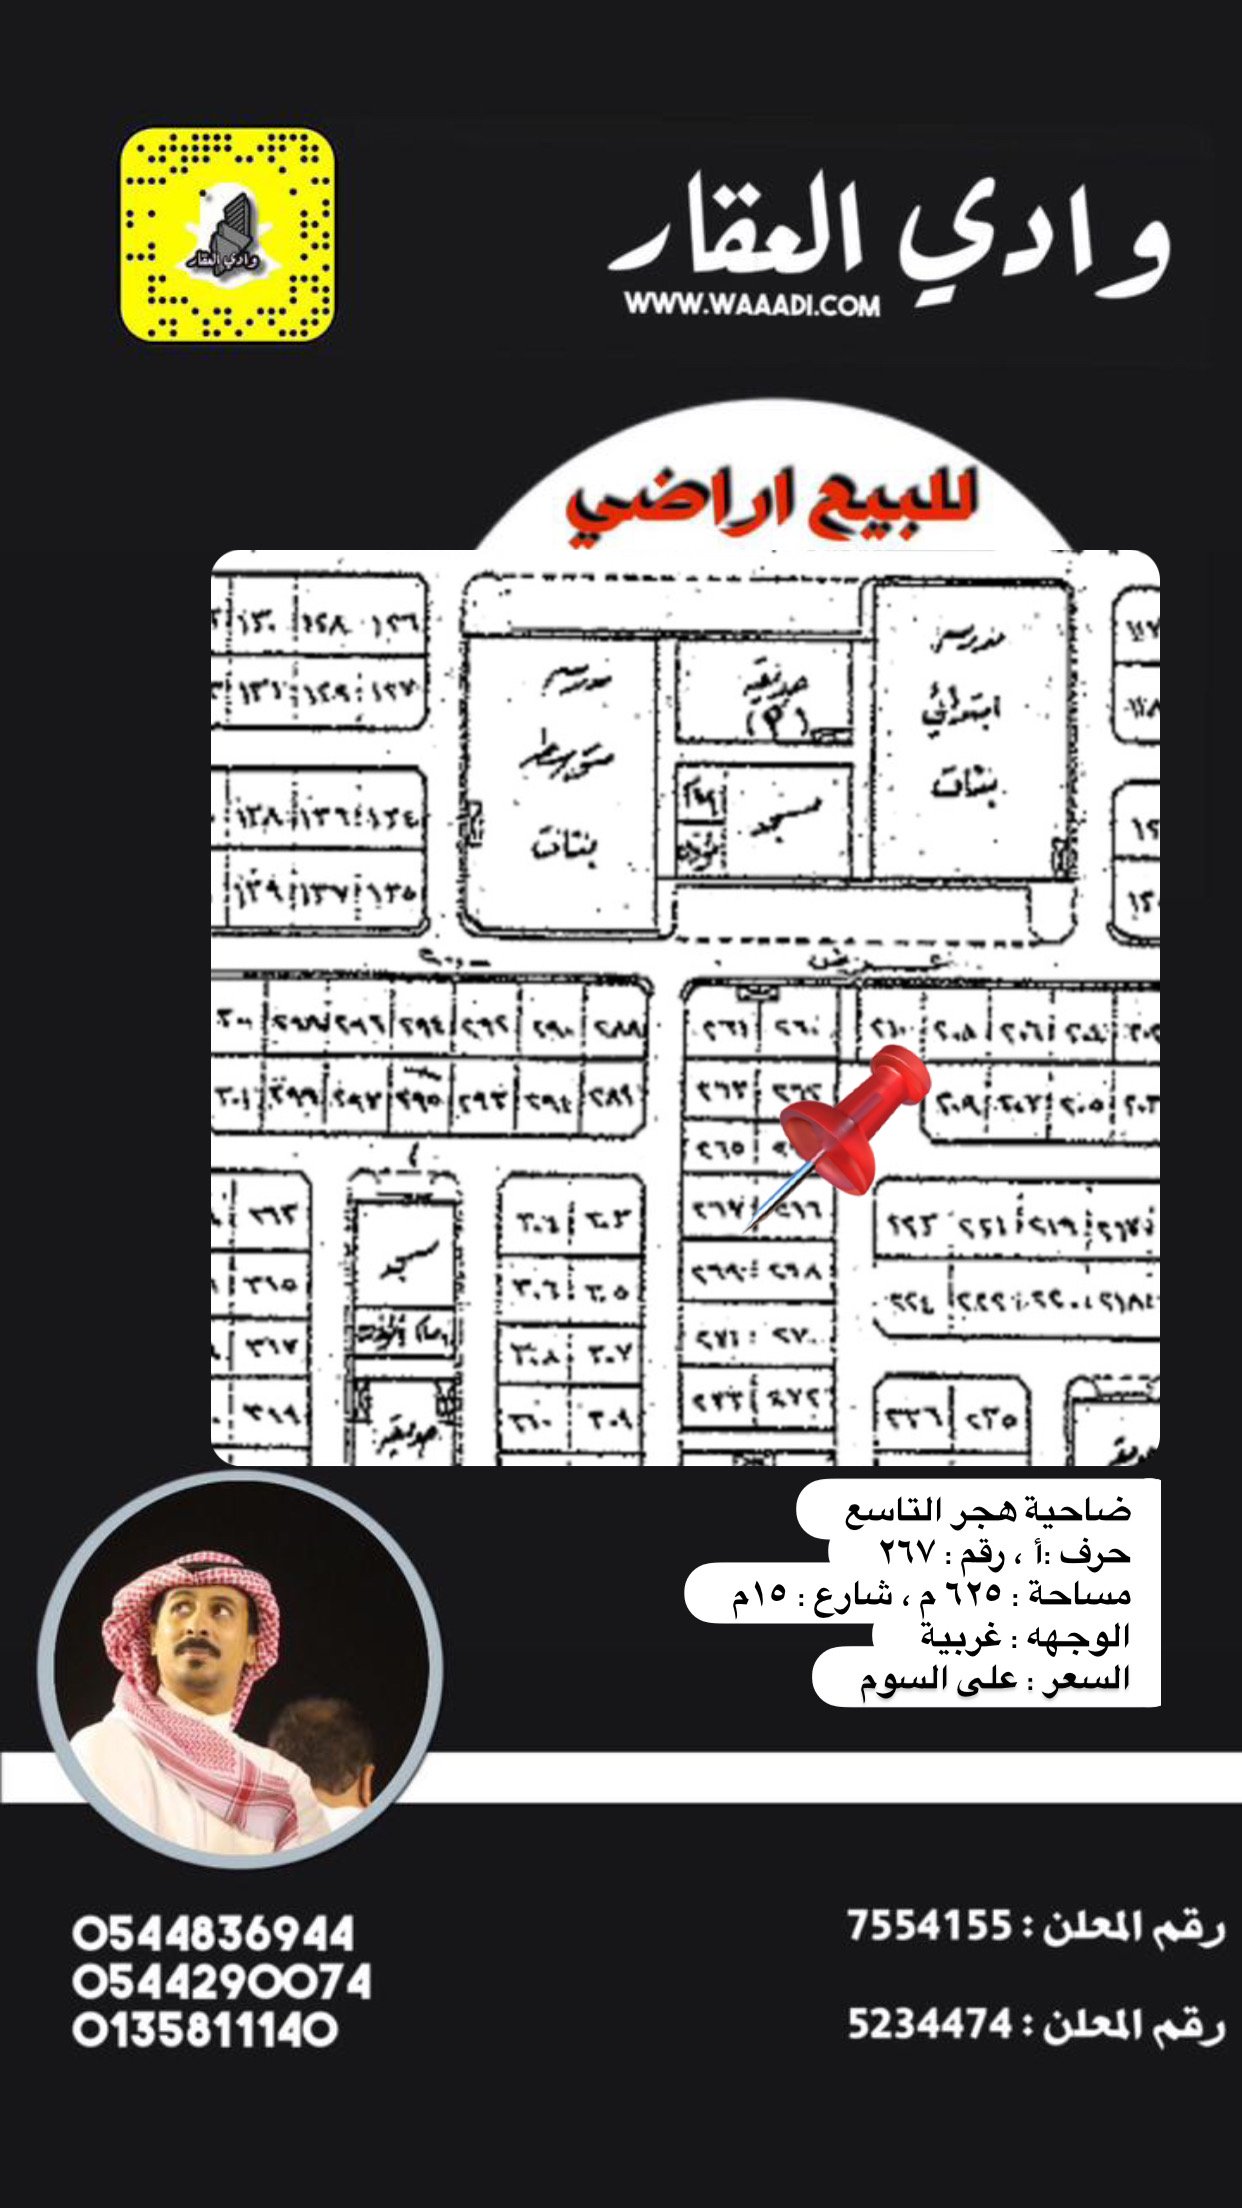 وادي العقار
WWW.WAAADI.COM
وادي العقار
للبيع اراضي
١٣٠ ١٢٨ ١٢٦
١٣١ ١٢٩ ١٢٧
مدرسة
متوسطة
بنات
حديقة
(٣)
مسجد
مدرسة
ابتدائي
بنات
١١٧
١١٨
١٣٨ ١٣٦ ١٣٤
١٣٩ ١٣٧ ١٣٥
٣٠٠ ٢٩٨ ٢٩٦ ٢٩٤ ٢٩٢ ٢٩٠ ٢٨٨
٣٠١ ٢٩٩ ٢٩٧ ٢٩٥ ٢٩٣ ٢٩١ ٢٨٩
٢٦١ ٢٦٠
٢٦٣ ٢٦٢
٢٦٥
٢٦٧ ٢٦٦
٢٦٩ ٢٦٨
٢٧١ ٢٧٠
٢٧٣ ٢٧٢
٢١٠ ٢٠٨ ٢٠٦ ٢٠٤ ٢٠٢
٢٠٩ ٢٠٧ ٢٠٥ ٢٠٣
٢٢٣ ٢٢١ ٢١٩ ٢١٧
٢٢٤ ٢٢٢ ٢٢٠ ٢١٨
٢٣٦ ٢٣٥
٣٠٤ ٣٠٣
٣٠٦ ٣٠٥
٣٠٨ ٣٠٧
٣١٠ ٣٠٩
مسجد
حديقة
٣١٣
٣١٥
٣١٧
٣١٩
ضاحية هجر التاسع
حرف :أ ، رقم : ٢٦٧
مساحة : ٦٢٥ م ، شارع : ١٥م
الوجهه : غربية
السعر : على السوم
0544836944
0544290074
0135811140
رقم المعلن : 7554155
رقم المعلن : 5234474